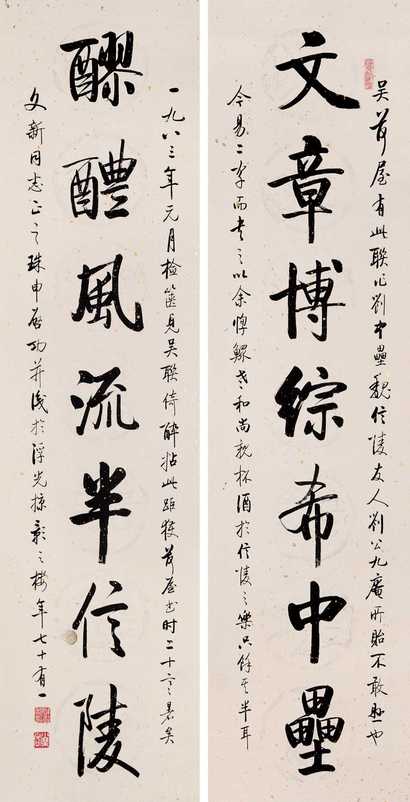 吳荷屋有此聯作劉中壘魏信陵友人劉公九所貽不敢也
文章博綜希中壘
今易二字而書之以余惸鰥老和尚視杯酒於信陵之樂只餘其半耳
一九八三年元月檢篋見吳聯倚醉拈此距獲荷屋書時二十寒暑矣
醪醴風流半信陵
文新同志正之珠申啟功并識於浮光掠影之樓年七十有一